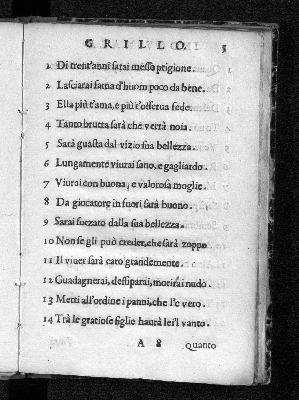 GRILLO. 5
1 Di trent'anni sarai messo prigione.
2 Lasciarai fama d'huom poco da bene.
3 Ella più t'ama, e più t'osserua fede.
4 Tanto brutta sarà che verrà noia.
5 Sarà guasta dal vizio sua bellezza.
6 Lungamente viurai sano, e gagliardo.
7 Viurai con buona, e valorosa moglie.
8 Da giocatore in fuori sarà buono.
9 Sarai forzato dalla sua bellezza.
10 Non se gli può creder, che sarà zoppo
11 Il viuer sarà caro grandemente.
12 Guadagnerai, dessiparai, morirai nudo.
13 Metti all'ordine i panni, che l'è vero.
14 Trà le gratiose figlie haurà lei'l vanto.
A 8 Quanto